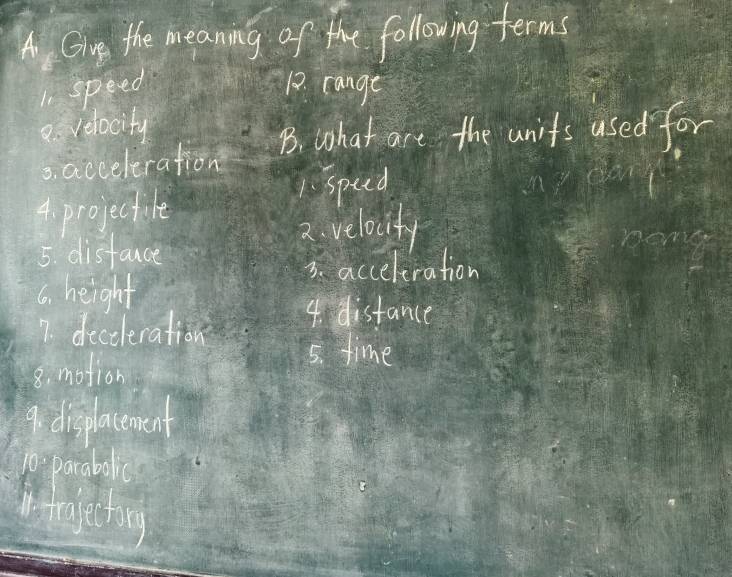 A. Give the meaning of the following terms
1. speed
2. velocity
3. acceleration
4. projectile
5. distance
6. height
7. deceleration
8. motion
9. displacement
10. parabolic
11. trajectory
12. range
B. What are the units used for
1. speed
2. velocity
3. acceleration
4. distance
5. time